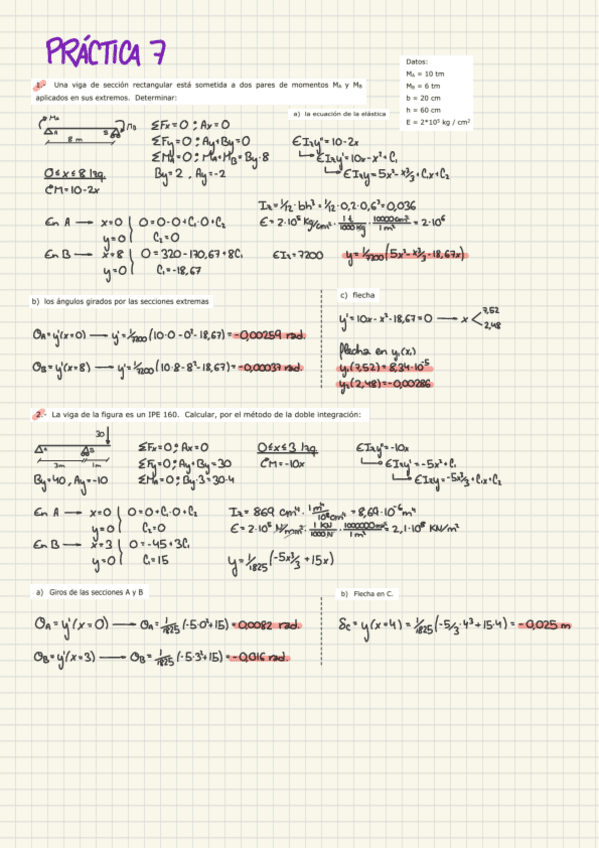 PRÁCTICA 7
Datos:
MA = 10 tm
MB = 6 tm
b = 20 cm
h = 60 cm
E = 2*10⁵ kg / cm²
1.- Una viga de sección rectangular está sometida a dos pares de momentos MA y MB
aplicados en sus extremos. Determinar:
a) la ecuación de la elástica
MA MB
A B
8 m
ΣFx=0 ; Ax=0
ΣFy=0 ; Ay+By=0
ΣMA=0 ; MA+MB=By·8
By=2 , Ay=-2
0≤x≤8 Izq.
M=10-2x
EIzy''=10-2x
EIzy'=10x-x²+C₁
EIzy=5x²-x³/3+C₁x+C₂
Iz=1/12·bh³=1/12·0,2·0,6³=0,036
E=2·10⁵ kg/cm²·1t/1000kg·10000cm²/1m²=2·10⁶
En A → x=0 0=0-0+C₁·0+C₂
y=0 C₂=0
En B → x=8 0=320-170,67+8C₁
y=0 C₁=-18,67
EIz=7200
y=1/7200(5x²-x³/3-18,67x)
b) los ángulos girados por las secciones extremas
θA=y'(x=0) → y'=1/7200(10·0-0²-18,67)=-0,00259 rad.
θB=y'(x=8) → y'=1/7200(10·8-8²-18,67)=-0,00037 rad.
c) flecha
y'=10x-x²-18,67=0 → x 7,52
2,48
flecha en y₁(x₁)
y₁(7,52)=8,34·10⁻⁵
y₂(2,48)=-0,00286
2.- La viga de la figura es un IPE 160. Calcular, por el método de la doble integración:
30
A B
3m 1m
By=40, Ay=-10
ΣFx=0 ; Ax=0
ΣFy=0 ; Ay+By=30
ΣMA=0 ; By·3=30·4
0≤x≤3 Izq
M=-10x
EIzy''=-10x
EIzy'=-5x²+C₁
EIzy=-5x³/3+C₁x+C₂
En A → x=0 0=0+C₁·0+C₂
y=0 C₂=0
En B → x=3 0=-45+3C₁
y=0 C₁=15
Iz=869 cm⁴·1m⁴/10⁸cm⁴=8,69·10⁻⁶m⁴
E=2·10⁵ N/mm²·1KN/1000N·1000000mm²/1m²=2,1·10⁸ KN/m²
y=1/1825(-5x³/3+15x)
a) Giros de las secciones A y B
θA=y'(x=0) → θA=1/1825(-5·0²+15)=0,0082 rad.
θB=y'(x=3) → θB=1/1825(-5·3²+15)=-0,016 rad.
b) Flecha en C.
δC=y(x=4)=1/1825(-5/3·4³+15·4)=-0,025 m